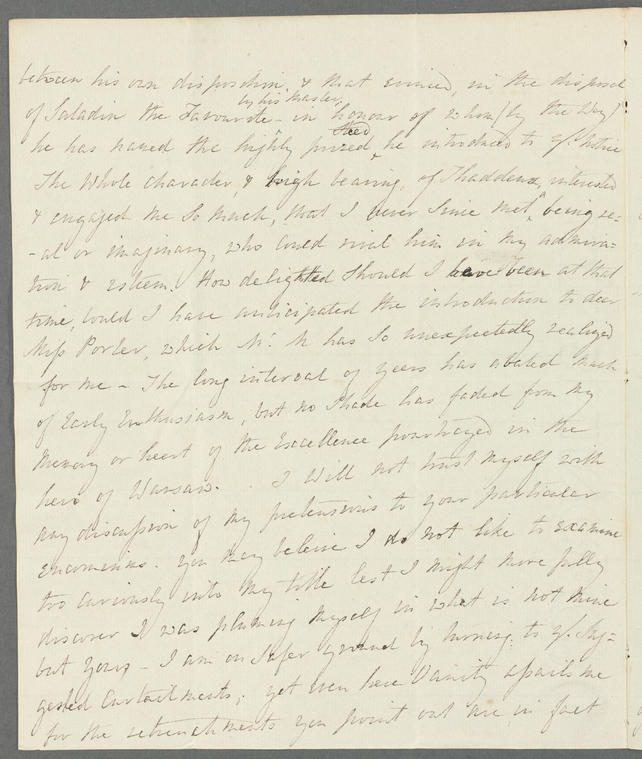 between his own disposition, & that evinced, in the disposal
by his Master,
of Saladin the Favourite - in honour of whom (by the Way)
steed
he has named the highly prized, he introduced to yr. notice
The Whole character, & high bearing, of Thaddeus, interested
& engaged me So much, that I never Since met, being re=
-al or imaginary, who could rival him in my admira=
tion & esteem. How delighted Should I have been at that
time, could I have anticipated the introduction to dear
Miss Porter, which Mr. M has So unexpectedly realized
for me - The long interval of years has abated much
of Early Enthusiasm, but no Shade has faded from my
Memory or heart of the Excellence pourtrayed in the
hero of Warsaw. I Will not trust myself with
any discussion of my pretensions to your particular
encomiums. you may beleive I do not like to examine
too Curiously into my title lest I might more fully
discover I was pluming myself in what is not mine
but yours - I am on Safer ground by turning to yr. Sug=
gested Curtailments; yet even here Vanity assails me
for the retrenchments you point out are in fact